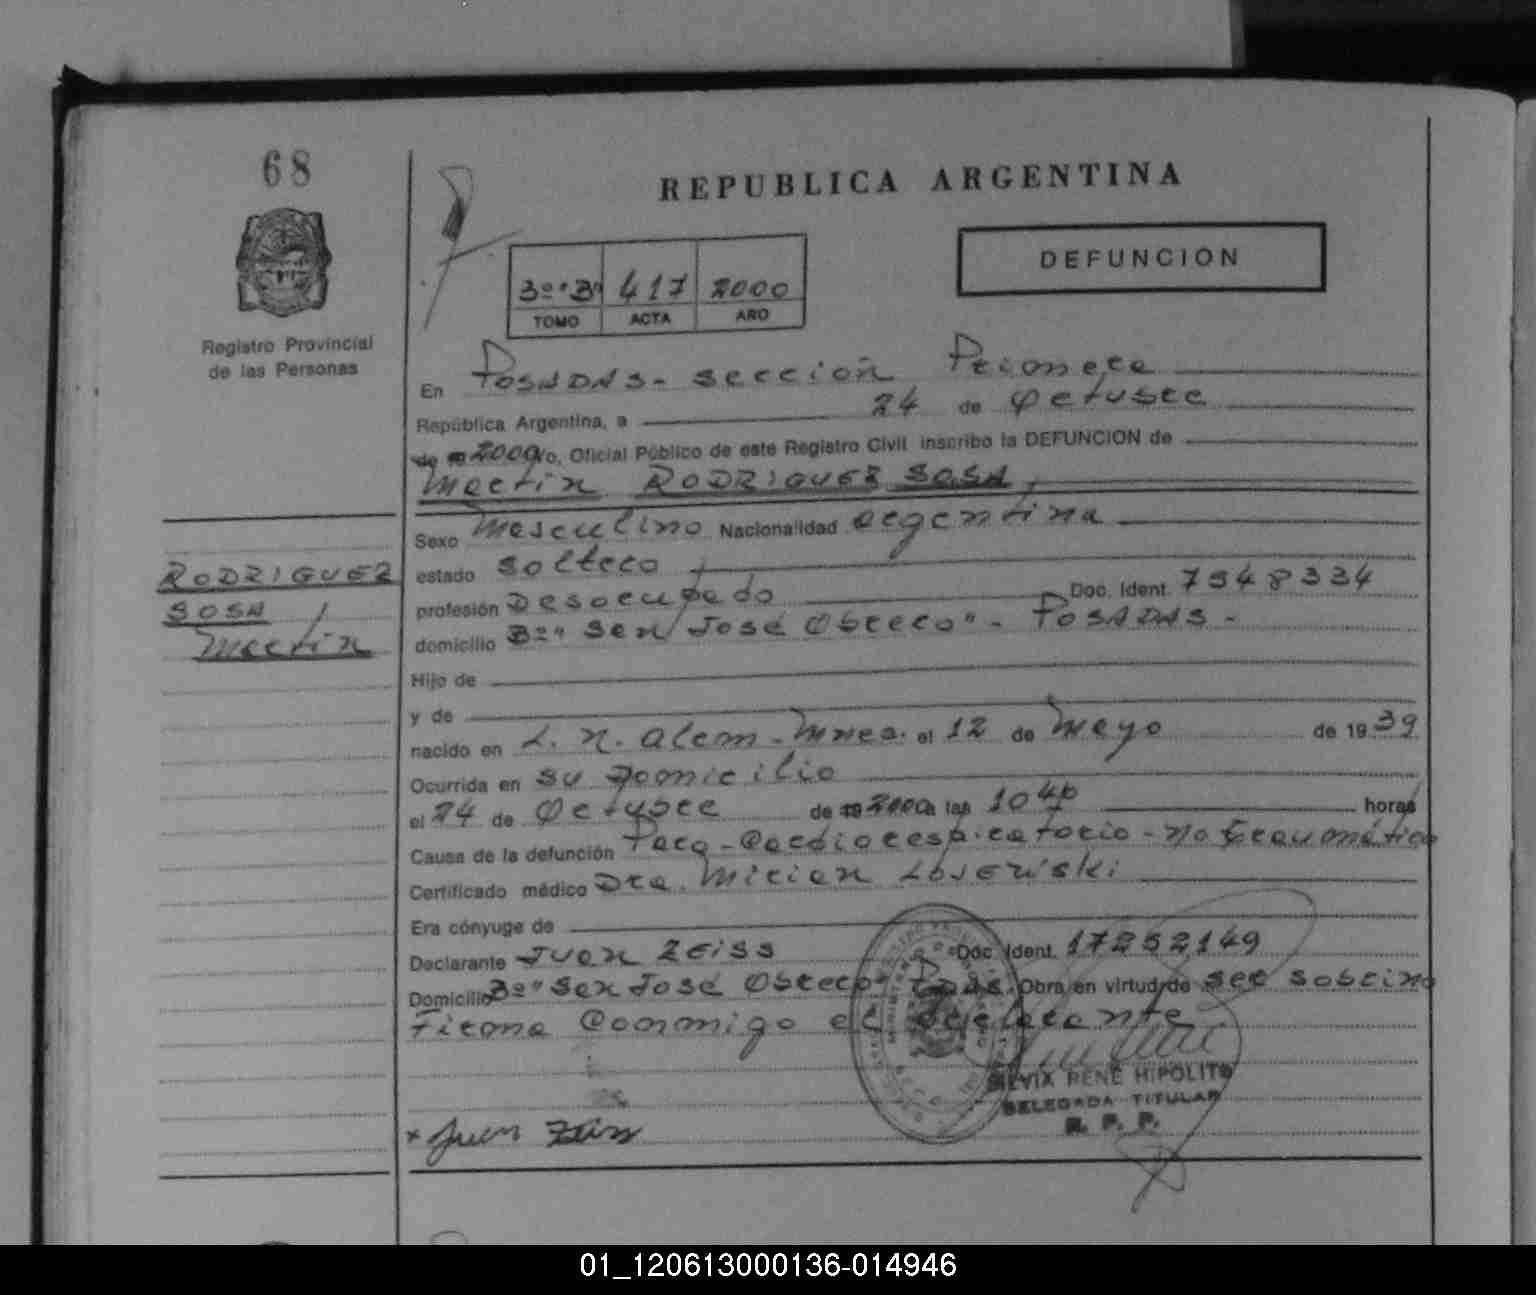 68
REPUBLICA ARGENTINA
DEFUNCION
3º "3" 417 2000
TOMO ACTA AÑO
Registro Provincial
de las Personas
En POSADAS - sección Primera
República Argentina, a 24 de octubre
de 19 2000 Yo, Oficial Público de este Registro Civil inscribo la DEFUNCION de
Martin RODRIGUEZ SOSA
Sexo Masculino Nacionalidad argentina
estado soltero
profesión Desocupado Doc. Ident. 7548334
domicilio Bº "San José Obrero" - POSADAS -
RODRIGUEZ
SOSA,
Martin
Hijo de
y de
nacido en L. N. Alem - Mnes. el 12 de Mayo de 1939
Ocurrida en su Domicilio
el 24 de octubre de 19 2000 a las 10 horas
Causa de la defunción Paro - Cardiorespiratorio - no traumático
Certificado médico Dra. Mirian
Era cónyuge de
Declarante Juan ZEISS Doc. Ident. 17252149
Domicilio Bº "San José Obrero" Pdas. Obra en virtud de ser sobrino
Firma Conmigo el declarante
SILVIX RENE HIPOLITO
DELEGADA TITULAR
R. P. P.
x Juan Zeiss
01_120613000136-014946